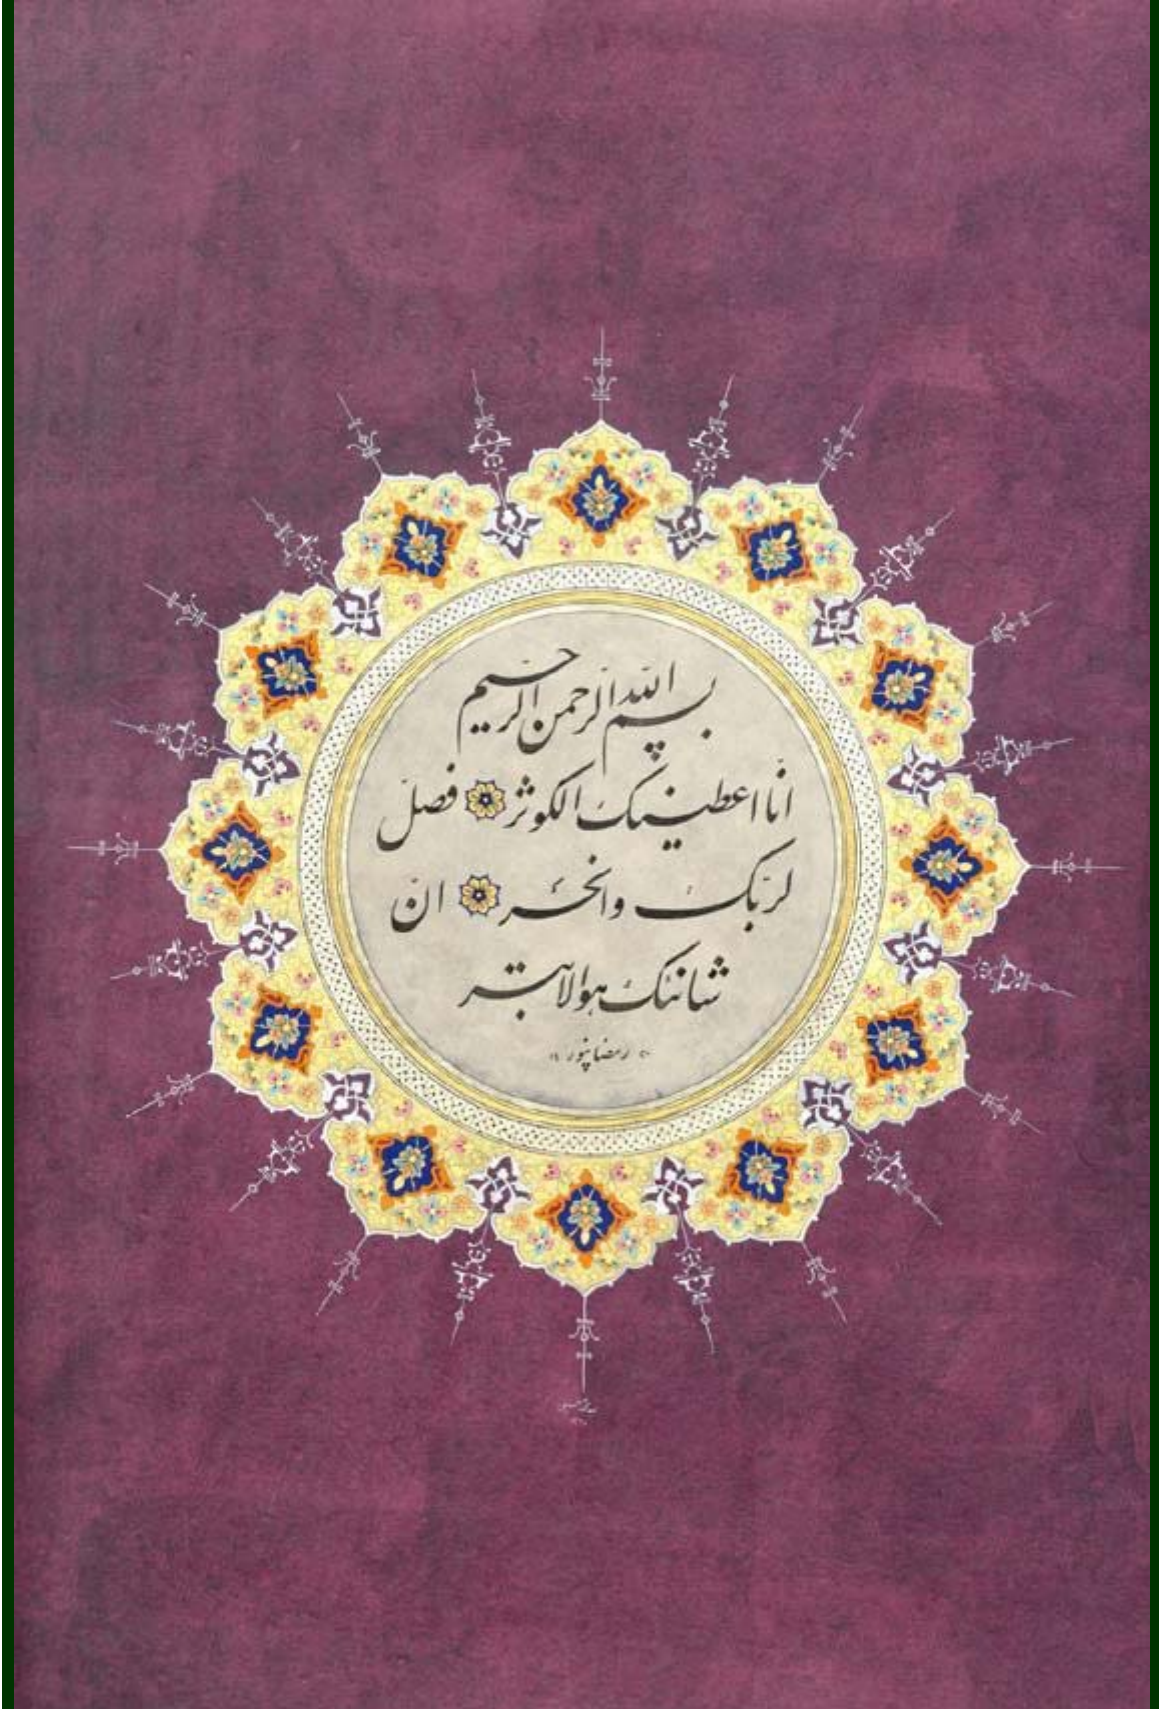 بسم الله الرحمن الرحیم
انّا اعطینک الکوثر فصلّ
لربّک وانحر انّ
شانئک هوالابتر
رمضانپور